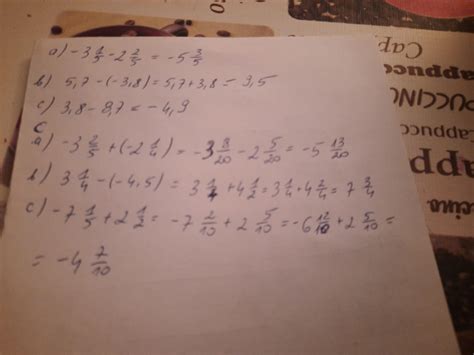 a) -3 1/5 - 2 2/5 = -5 3/5
b) 5,7 - (-3,8) = 5,7 + 3,8 = 9,5
c) 3,8 - 8,7 = -4,9
C
a) -3 2/5 + (-2 1/4) = -3 8/20 - 2 5/20 = -5 13/20
b) 3 1/4 - (-4,5) = 3 1/4 + 4 1/2 = 3 1/4 + 4 2/4 = 7 3/4
c) -7 1/5 + 2 1/2 = -7 2/10 + 2 5/10 = -6 12/10 + 2 5/10 =
= -4 7/10
Cap
appucc
CCINO
Cappucc
app